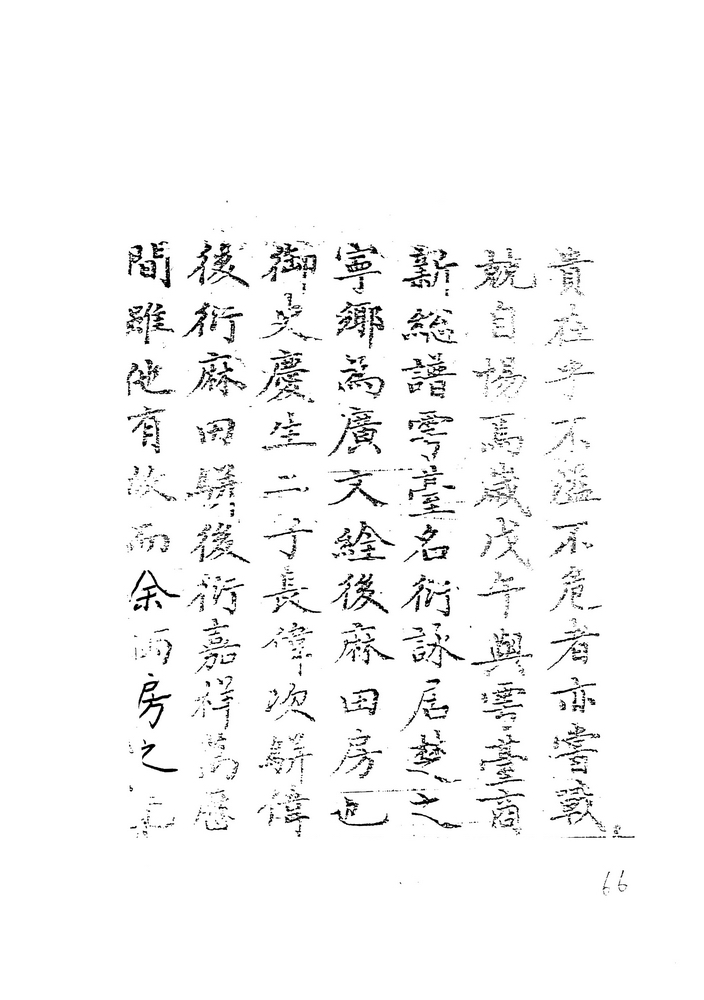 貴在乎不溢不危者亦嘗戰
兢自惕焉歲戊午與雲臺商
新總譜雩臺名衍詠居楚之
寧鄉為廣文銓後麻田房也
御史慶生二子長偉次駢偉
後衍麻田駢後衍嘉祥萬歷
間雖他有故而余兩房之
66